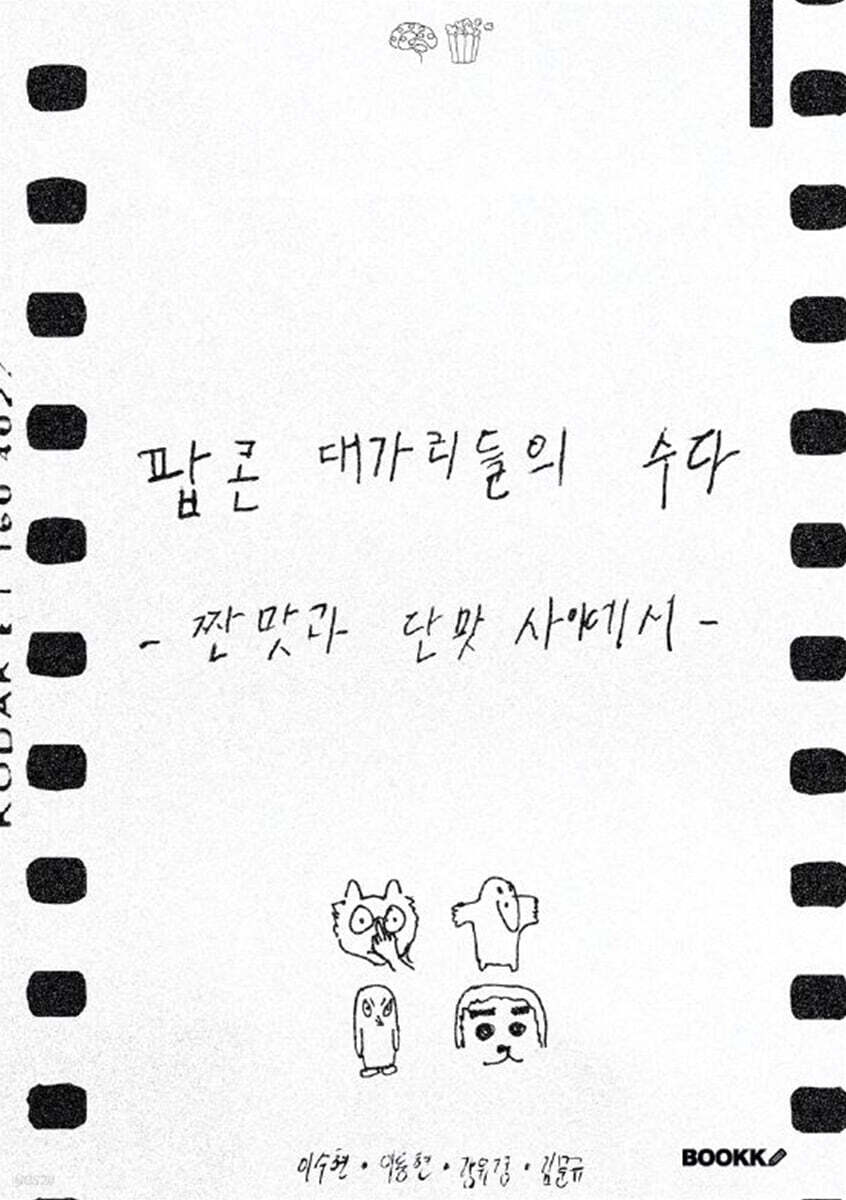 팝콘 대가리들의 수다
- 짠맛과 단맛 사이에서 -
이수현 · 이동현 · 강유경 · 김문규
BOOKK
KODAK